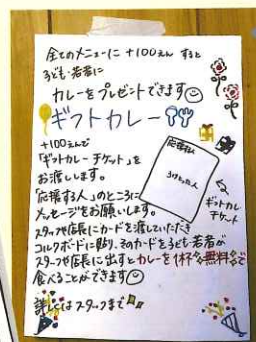 全てのメニューに +100えん すると
子ども・若者に
カレーをプレゼントできます
ギフトカレー
+100えんで
「ギフトカレーチケット」を
お渡しします。
「応援する人」のところに
メッセージをお願いします。
スタッフや店長にカードを渡していただき
コルクボードに貼り、そのカードを子ども若者が
スタッフや店長に出すとカレーを1杯無料で
食べることができます
詳しくはスタッフまで
応援する人
うけとった人
ギフトカレー
チケット